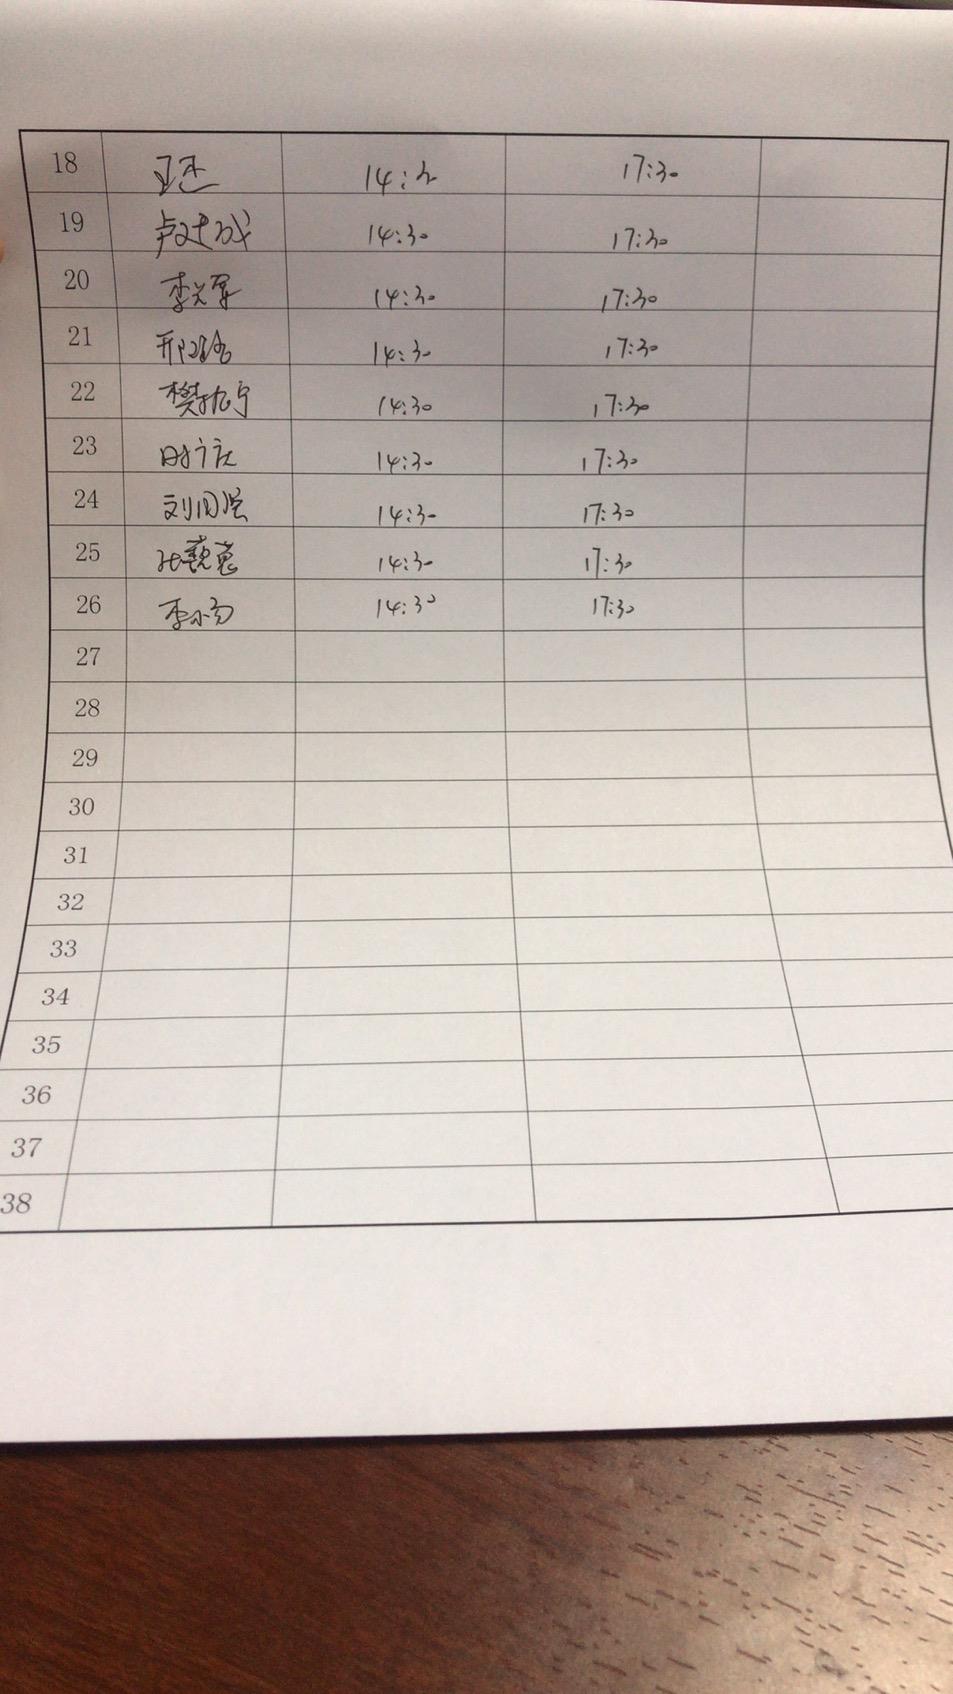 18 王杰 14:30 17:30
19 14:30 17:30
20 14:30 17:30
21 14:30 17:30
22 14:30 17:30
23 14:30 17:30
24 14:30 17:30
25 14:30 17:30
26 14:30 17:30
27
28
29
30
31
32
33
34
35
36
37
38